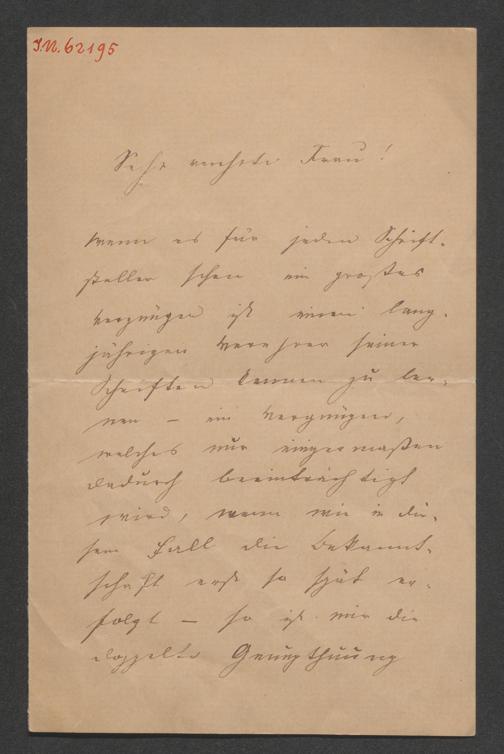 J.N. 62195
Sehr verehrte Frau!
Wenn es für jeden Schrift-
steller schon ein großes
Vergnügen ist einen lang-
jährigen Verehrer seiner
Schriften kennen zu ler-
nen – ein Vergnügen,
welches nur einigermaßen
dadurch beeinträchtigt
wird, wenn wie in die-
sem Fall die Bekannt-
schaft erst so spät er-
folgt – so ist mir die
doppelte Genugthuung